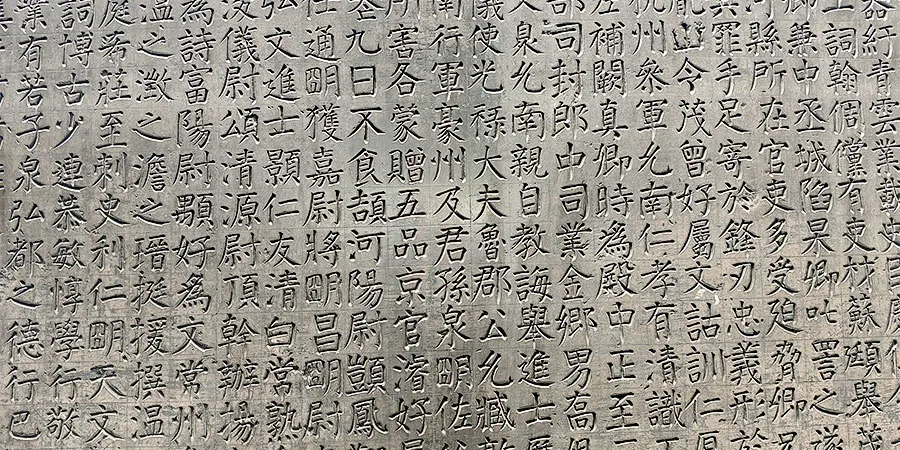 紆青雲業
詞翰倜儻有吏材蘇頲舉
卿兼中丞城陷杲卿叱詈之遂
河縣所在官吏多受廹脅卿兄
罪手足寄於鋒刃忠義形於
令茂曾好屬文詁訓仁厚
杭州叅軍允南仁孝有清識
左補闕真卿時爲殿中正至
部司封郎中司業金鄉男高
泉允南親自教誨舉進士
義使光祿大夫魯郡公允臧
南行軍豪州及君孫泉明佐
所害各蒙贈五品京官濬好
卷九日不食頡河陽尉顗鳳
任通明獲嘉尉將明昌明尉
弘文進士顥仁友清白常熟
浚儀尉頌清源尉頂幹辦場
爲詩富陽尉顒好爲文常州
温之澂之澹之瑨挺援撰温
庭希莊至刺史利仁明天文
詞博古少連恭敏惇學行敬
業有若子泉弘都之德行巴